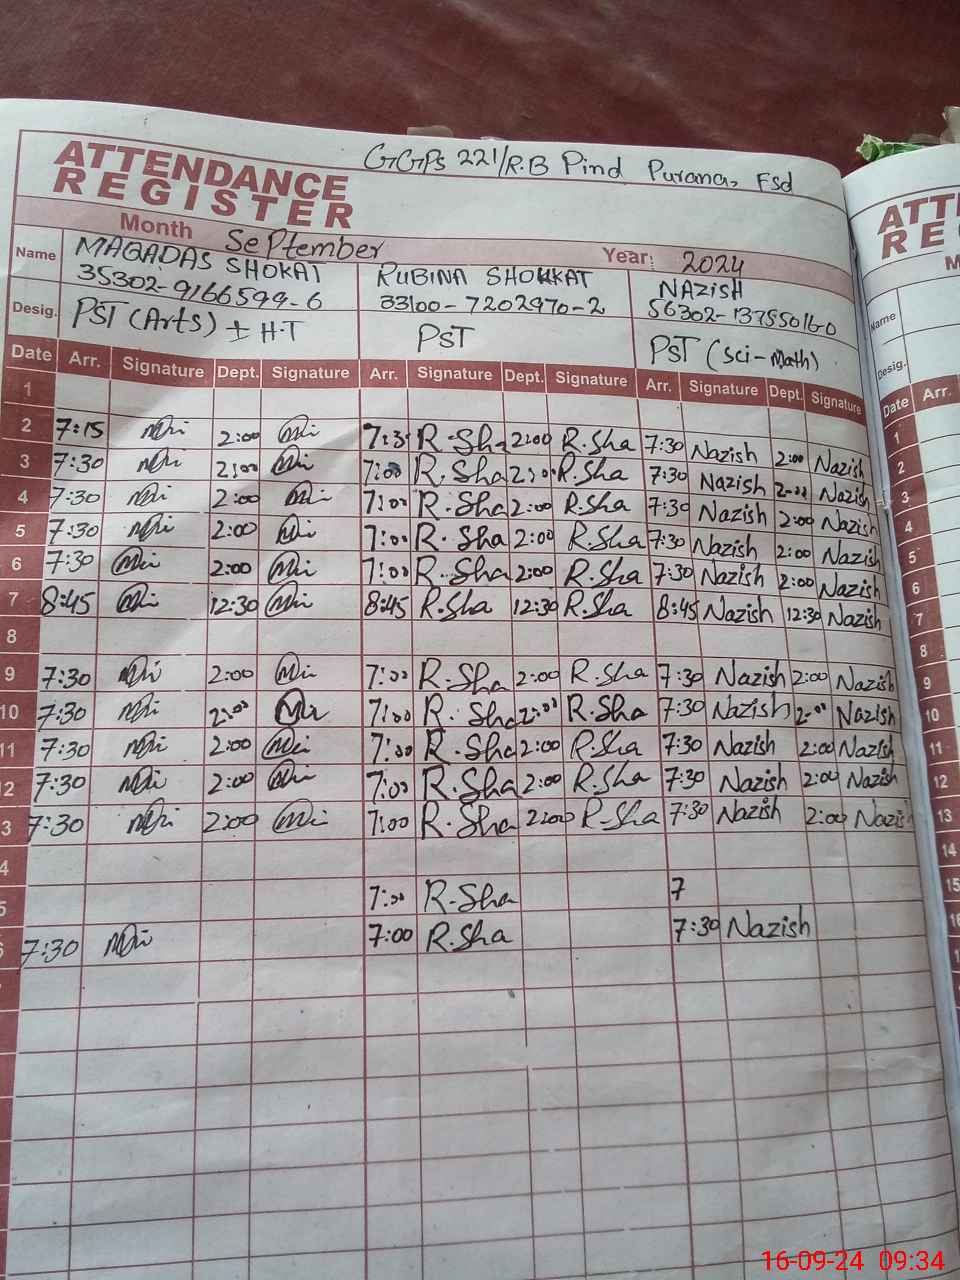 GGPS 221/R.B Pind Purana, Fsd
ATTENDANCE
REGISTER
Month September Year: 2024
Name MAQADAS SHOKAT RUBINA SHOUKAT NAZISH
35302-9166599-6 33100-7202970-2 56302-137550160
Desig. PST (Arts) ± H.T PST PST (Sci-Math)
Date Arr. Signature Dept. Signature Arr. Signature Dept. Signature Arr. Signature Dept. Signature
1
2 7:15 2:00 7:3 R.Sha 2:00 R.Sha 7:30 Nazish 2:00 Nazish
3 7:30 2:00 7:00 R.Sha 2:0 R.Sha 7:30 Nazish 2:00 Nazish
4 7:30 2:00 7:00 R.Sha 2:00 R.Sha 7:30 Nazish 2:00 Nazish
5 7:30 2:00 7:00 R.Sha 2:00 R.Sha 7:30 Nazish 2:00 Nazish
6 7:30 2:00 7:00 R.Sha 2:00 R.Sha 7:30 Nazish 2:00 Nazish
7 8:45 12:30 8:45 R.Sha 12:30 R.Sha 8:45 Nazish 12:30 Nazish
8
9 7:30 2:00 7:00 R.Sha 2:00 R.Sha 7:30 Nazish 2:00 Nazish
10 7:30 2:00 7:00 R.Sha 2:00 R.Sha 7:30 Nazish 2:00 Nazish
11 7:30 2:00 7:00 R.Sha 2:00 R.Sha 7:30 Nazish 2:00 Nazish
2 7:30 2:00 7:00 R.Sha 2:00 R.Sha 7:30 Nazish 2:00 Nazish
3 7:30 2:00 7:00 R.Sha 2:00 R.Sha 7:30 Nazish 2:00 Nazis
4
5 7:00 R.Sha 7
6 7:30 7:00 R.Sha 7:30 Nazish
ATT
RE
M
Name
Desig.
Date Arr.
1
2
3
4
5
6
7
8
9
10
11
12
13
14
15
16
16-09-24 09:34